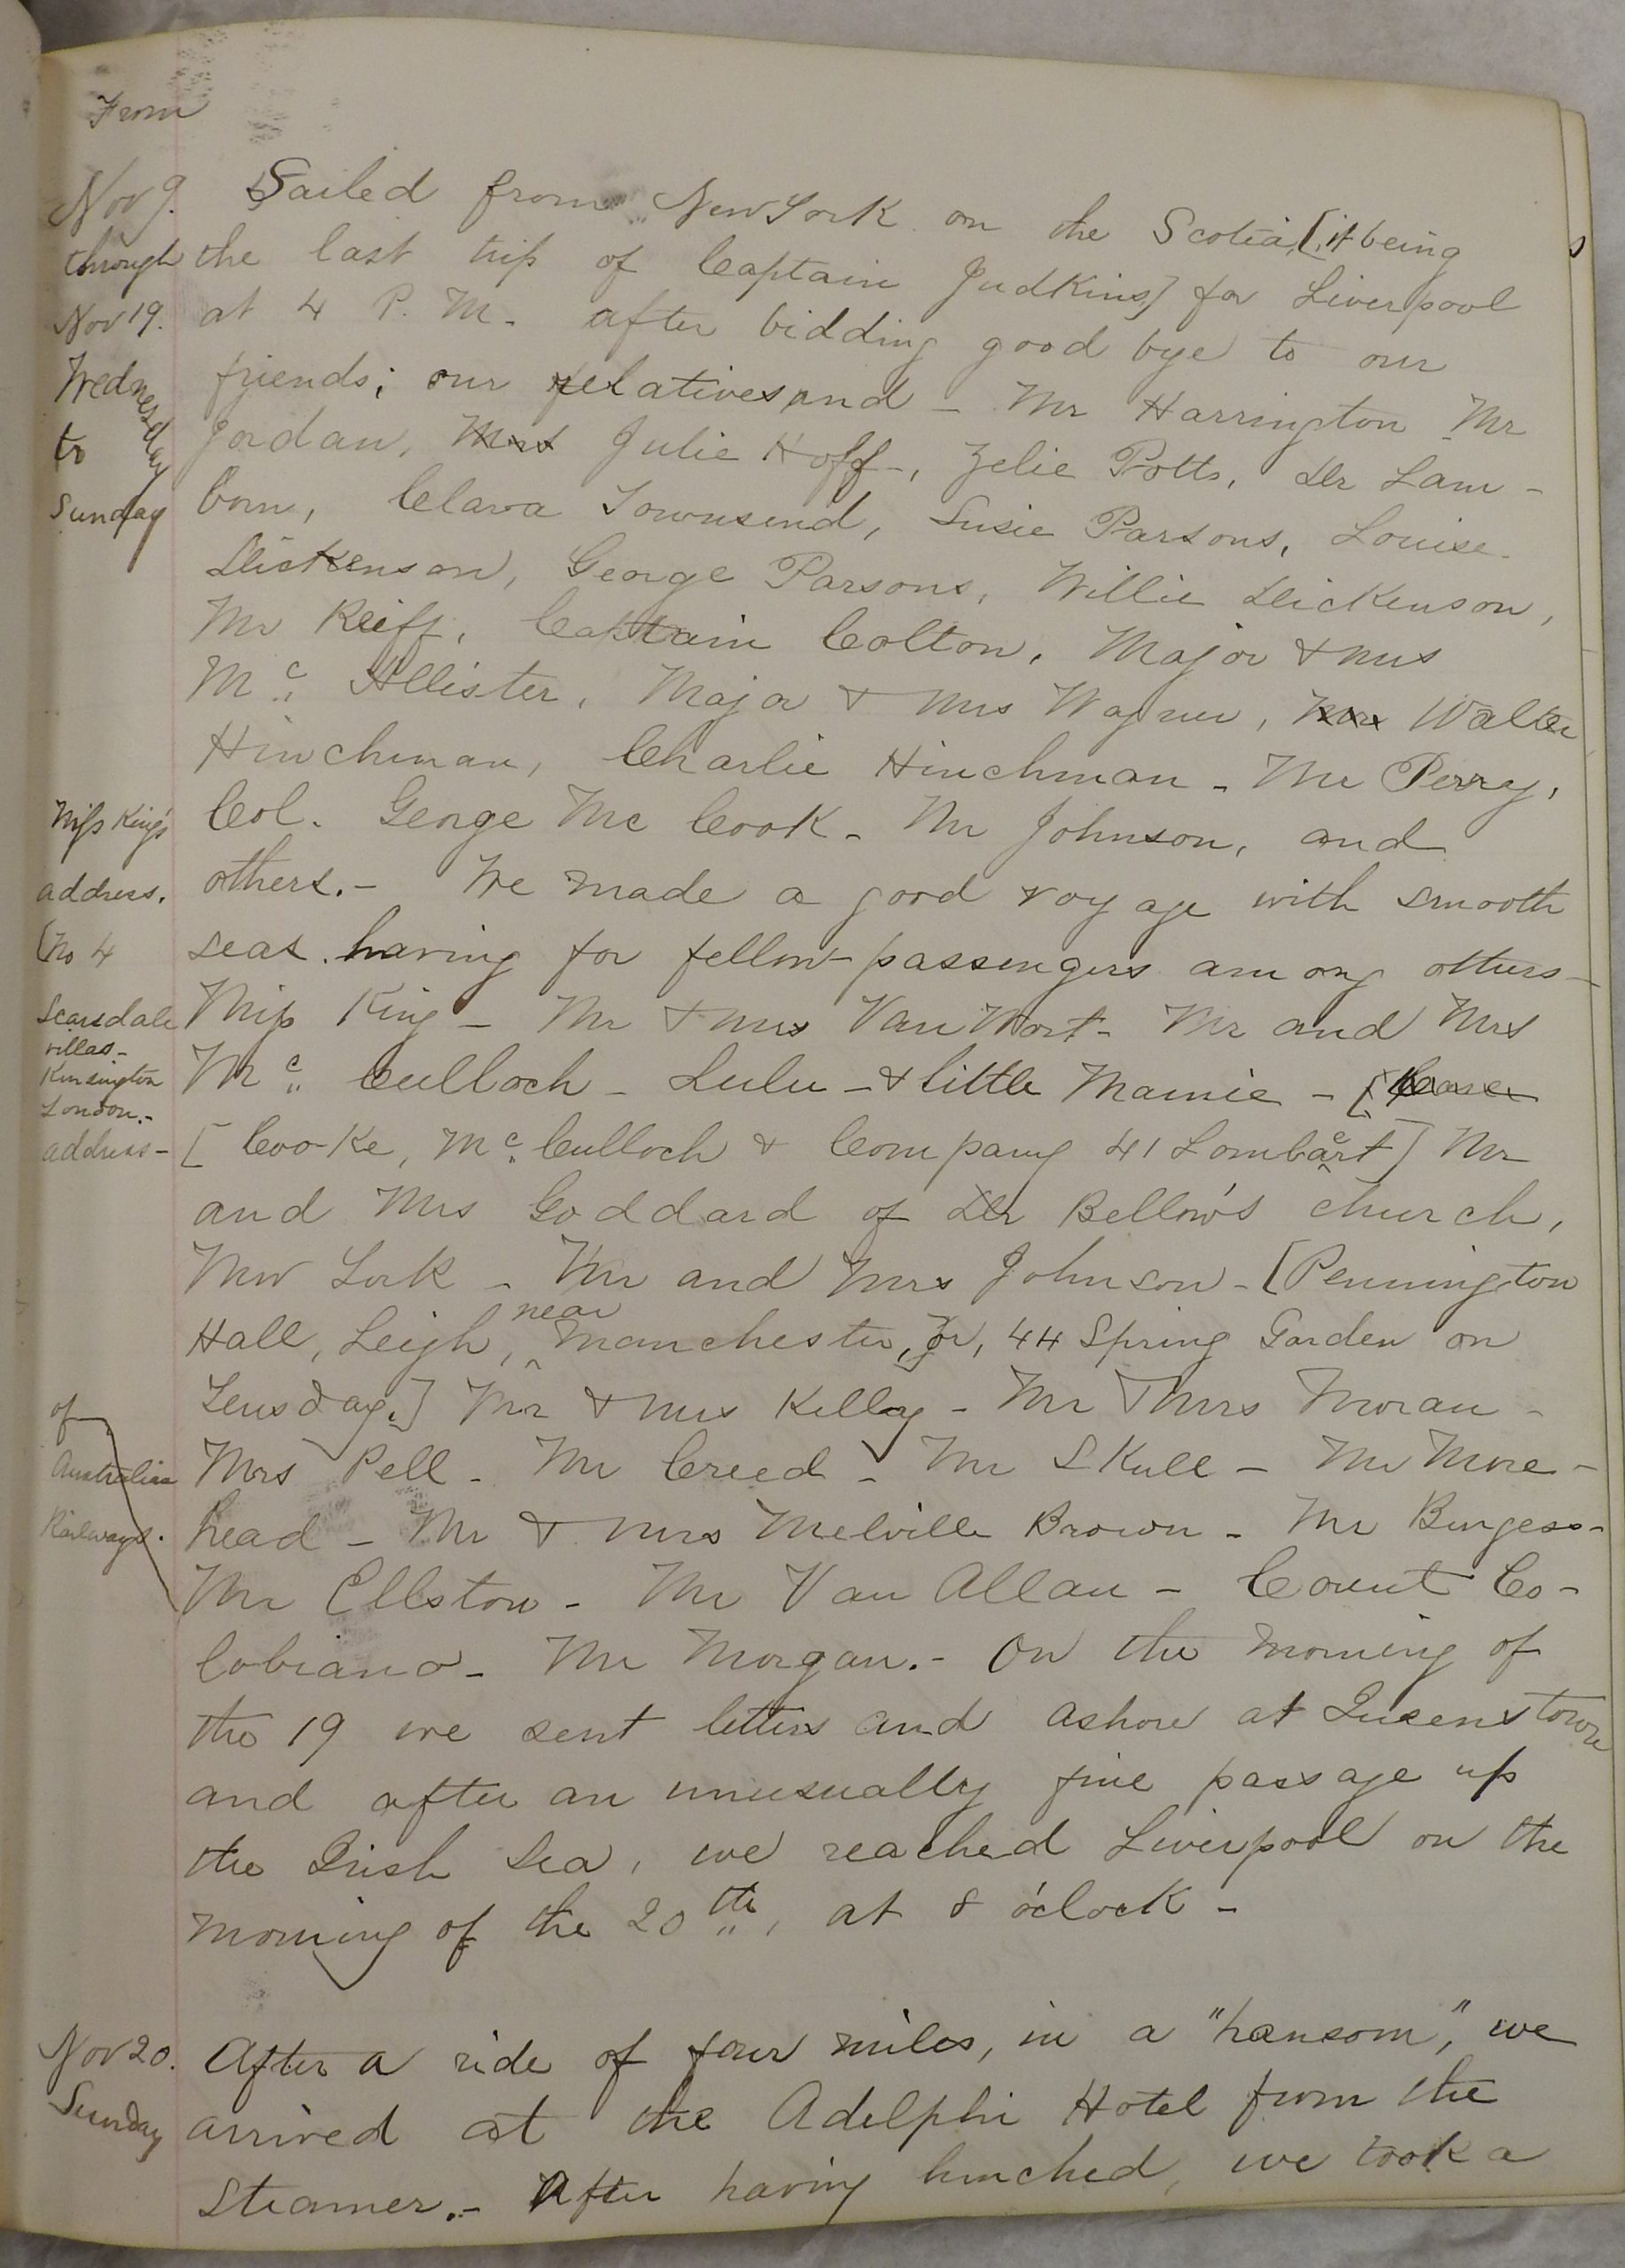 From
Nov 9. Sailed from New York on the Scotia, [it being
through the last trip of Captain Judkins] for Liverpool
Nov 19. at 4 P. M. after bidding good bye to our
Wednesday friends; our relatives and - Mr Harrington Mr
to Jordan, Mrs Julie Hoff -, Zelie Potts, Dr Lam-
Sunday born, Clara Townsend, Susie Parsons, Louise
Dickenson, George Parsons, Willie Dickenson,
Mr Reiff, Captain Colton, Major & Mrs
Mc Allister, Major & Mrs Wagner, Walter
Hinchman, Charlie Hinchman - Mr Perry,
Miss King's Col. George Mc Cook - Mr Johnson, and
address. others. - We made a good voyage with smooth
[No 4 seas. having for fellow-passengers among others -
Scarsdale Miss King - Mr & Mrs Van Wort - Mr and Mrs
villas -
Kinsington Mc Culloch - Lulu - & little Mamie - [
London. -
address - [Cooke, Mc Culloch & Company 41 Lombart] Mr
and Mrs Goddard of Dr Bellow's church,
New York - Mr and Mrs Johnson - [Pennington
Hall, Leigh, near Manchester, or, 44 Spring Garden on
of Teusday.] Mr & Mrs Kelley - Mr & Mrs Moran -
Australian Mrs Pell - Mr Creed - Mr Skull - Mr More-
Railways. head - Mr & Mrs Melville Brown - Mr Burgess -
Mr Ellston - Mr Van Allan - Count Co-
lobiano - Mr Morgan. - On the morning of
the 19 we sent letters and ashore at Queenstown
and after an unusually fine passage up
the Irish Sea, we reached Liverpool on the
morning of the 20th, at 8 o'clock -
Nov 20. After a ride of four miles, in a "hansom," we
Sunday arrived at the Adelphi Hotel from the
steamer. - After having lunched, we took a